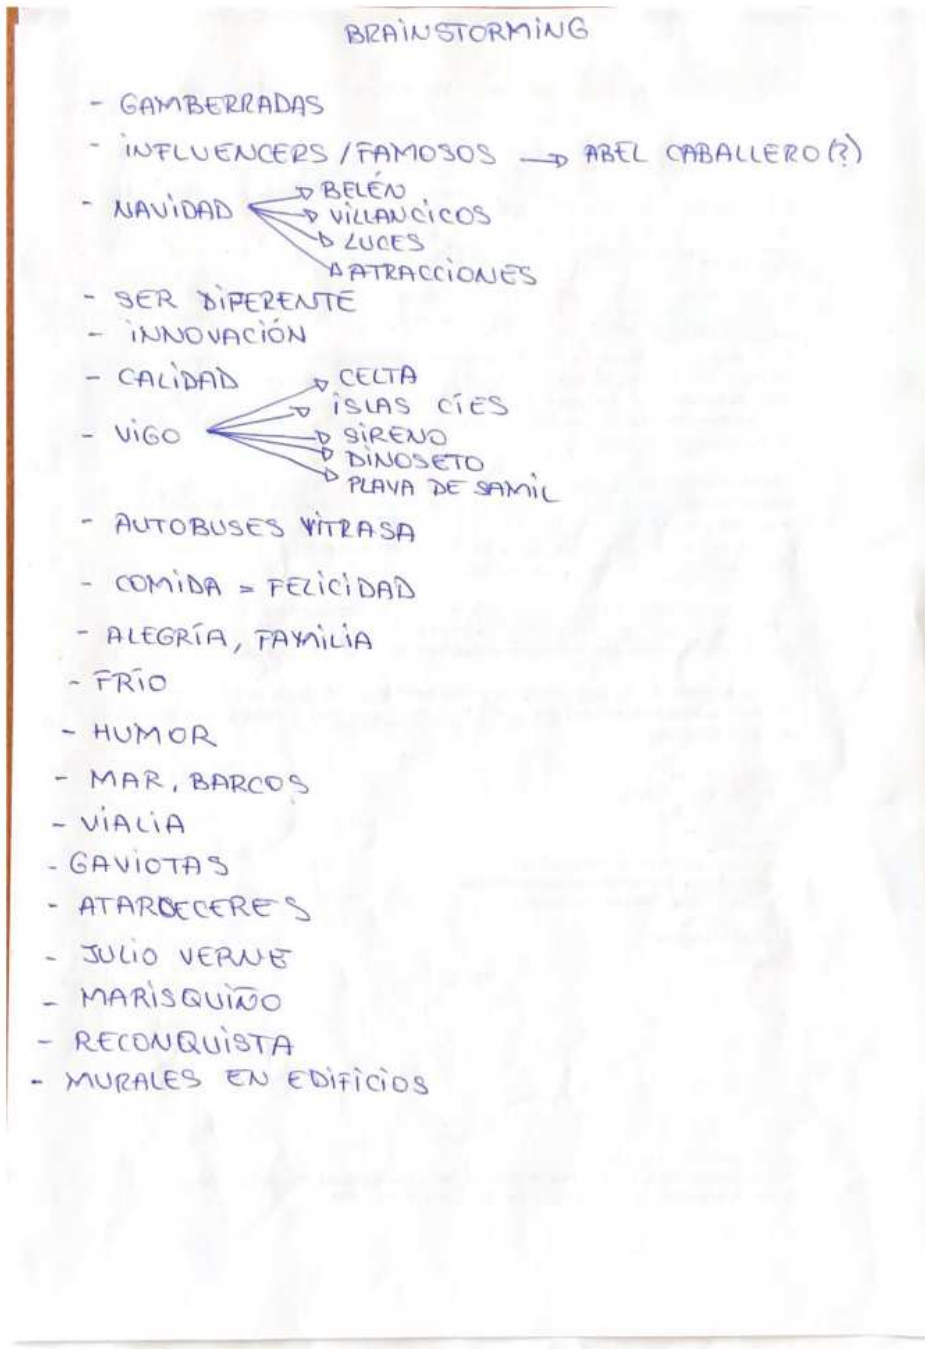 BRAINSTORMING
- GAMBERRADAS
- INFLUENCERS / FAMOSOS → ABEL CABALLERO (?)
- NAVIDAD
→ BELÉN
→ VILLANCICOS
→ LUCES
→ ATRACCIONES
- SER DIFERENTE
- INNOVACIÓN
- CALIDAD
- VIGO
→ CELTA
→ ISLAS CÍES
→ SIRENO
→ DINOSETO
→ PLAYA DE SAMIL
- AUTOBUSES VITRASA
- COMIDA = FELICIDAD
- ALEGRÍA, FAMILIA
- FRÍO
- HUMOR
- MAR, BARCOS
- VIALIA
- GAVIOTAS
- ATARDECERES
- JULIO VERNE
- MARISQUIÑO
- RECONQUISTA
- MURALES EN EDIFICIOS